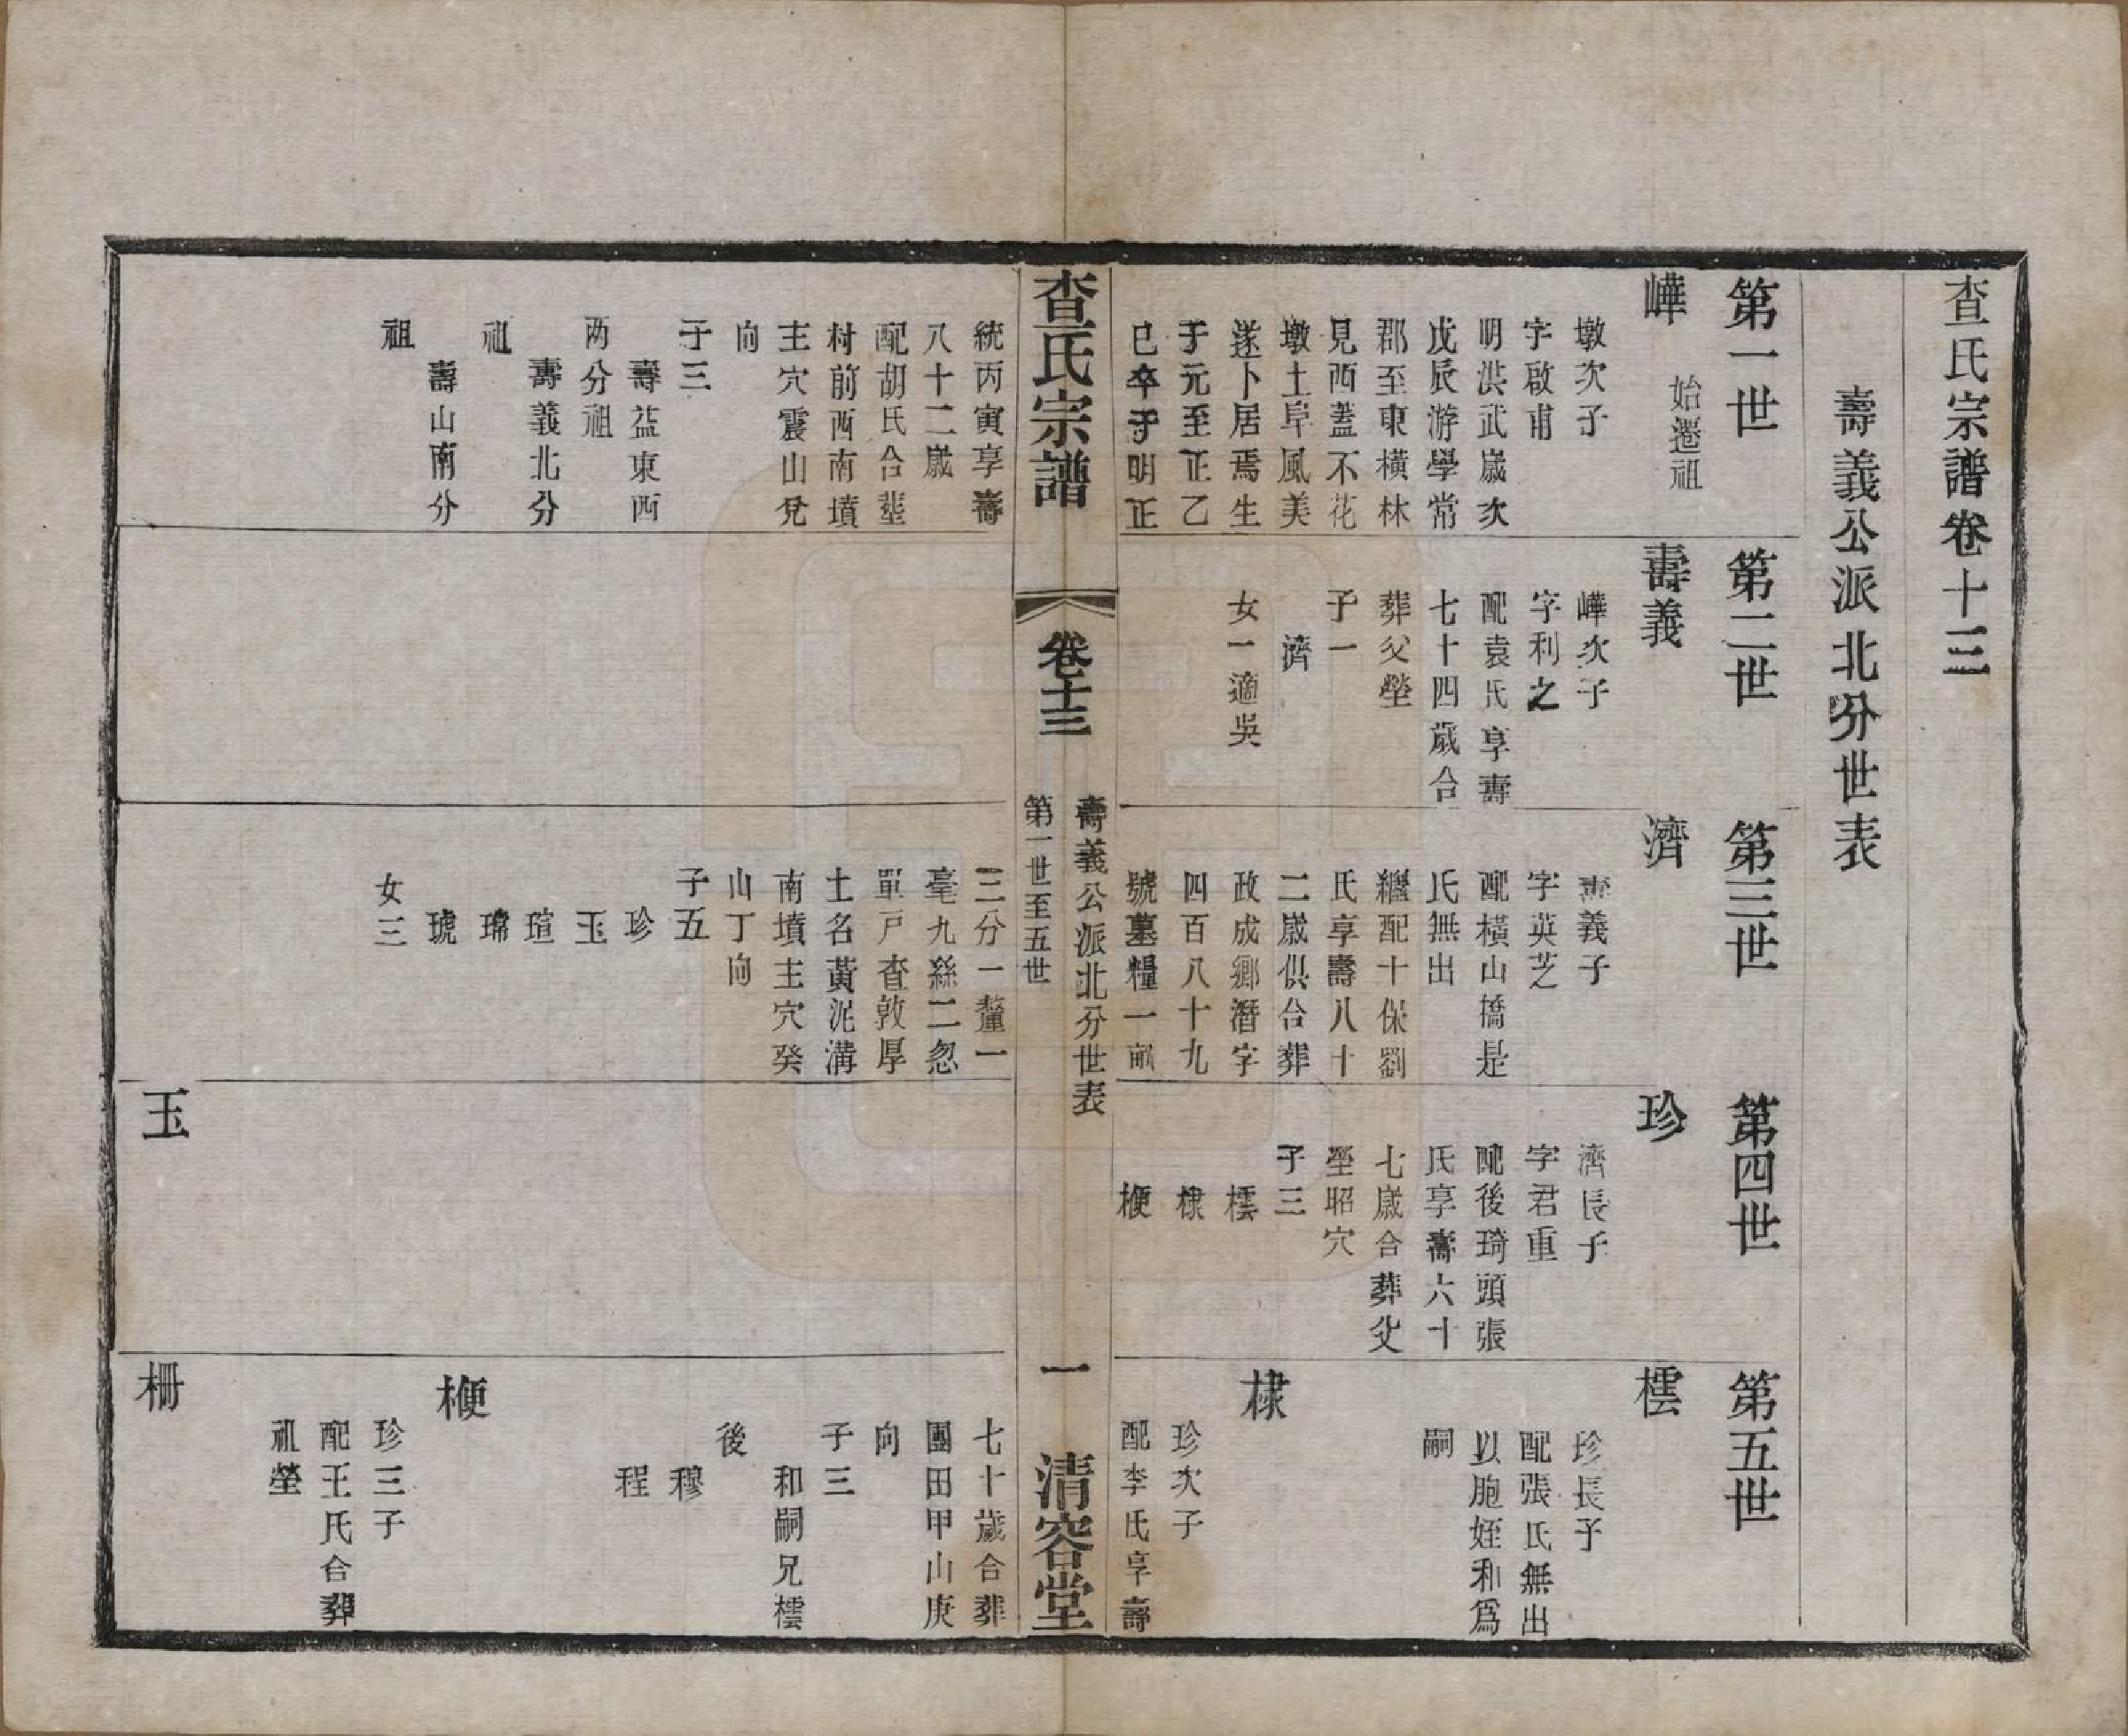 查氏宗譜卷十三
壽義公派北分世表
第一世
嶫
始遷祖
墩次子
字啟甫
明洪武歲次
戊辰游學常
郡至東橫林
見西蓋不花
墩土阜風美
遂卜居焉生
于元至正乙
巳卒于明正
統丙寅享壽
八十二歲
配胡氏合塟
村前西南墳
主穴震山兌
向
子三
壽益東西
两分祖
壽義北分
祖
壽山南分
祖
第二世
壽義
嶫次子
字利之
配袁氏享壽
七十四歲合
葬父塋
子一
濟
女一適吳
第三世
濟
壽義子
字英芝
配橫山橋是
氏無出
繼配十保劉
氏享壽八十
二歲俱合葬
政成鄉潛字
四百八十九
號墓糧一畝
三分一釐一
毫九絲二忽
單戶查敦厚
土名黃泥溝
南墳主穴癸
山丁向
子五
珍
玉
瑄
琋
琥
女三
第四世
珍
濟長子
字君重
配後琦頭張
氏享壽六十
七歲合葬父
塋昭穴
子三
橒
棣
楩
玉
第五世
橒
珍長子
配張氏無出
以胞姪和爲
嗣
棣
珍次子
配李氏享壽
七十歲合葬
團田甲山庚
向
子三
和嗣兄橒
後
穆
程
楩
珍三子
配王氏合葬
祖塋
柵
查氏宗譜
卷十三
壽義公派北分世表
第一世至五世
一
清容堂